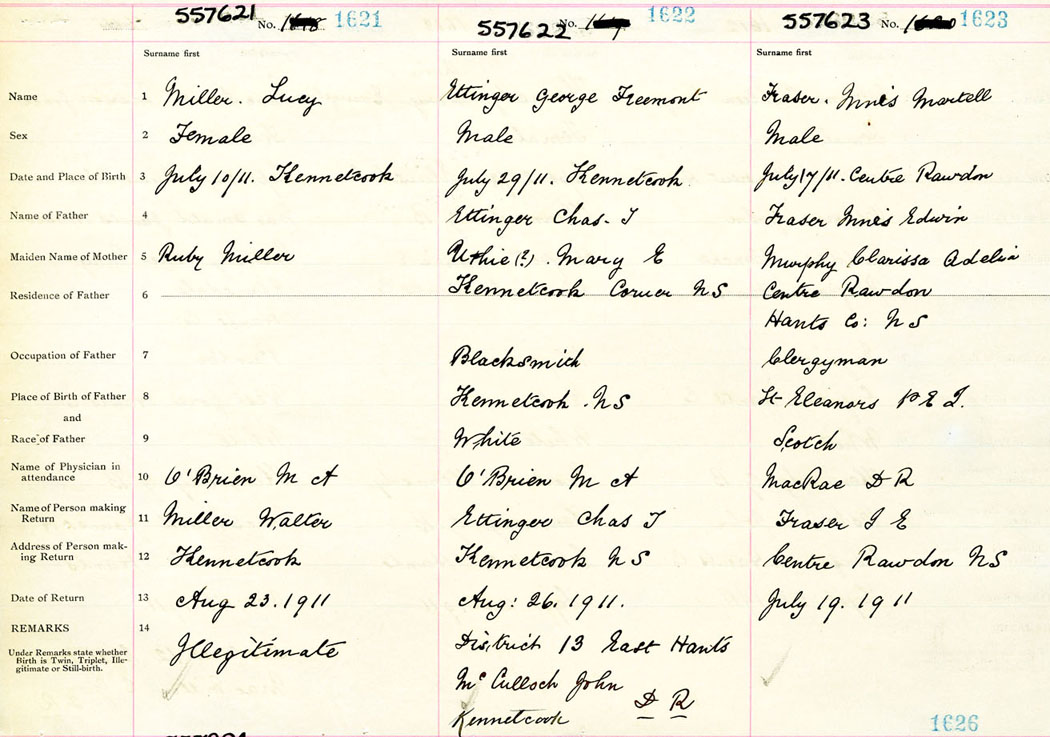 557621 No. 1621 557622 No. 1622 557623 No. 1623
Surname first Surname first Surname first
Name 1 Miller. Lucy Ettinger George Freemont Fraser. Innis Martell
Sex 2 Female Male Male
Date and Place of Birth 3 July 10/11. Kennetcook July 29/11. Kennetcook July 17/11. Centre Rawdon
Name of Father 4 Ettinger Chas. T Fraser Innis Edwin
Maiden Name of Mother 5 Ruby Miller Uthie (?). Mary E Murphy Clarissa Adelia
Residence of Father 6 Kennetcook Corner NS Centre Rawdon
Hants Co: NS
Occupation of Father 7 Blacksmith Clergyman
Place of Birth of Father 8 Kennetcook. NS St Eleanors P E I.
and
Race of Father 9 White Scotch
Name of Physician in
attendance 10 O'Brien M A O'Brien M A MacRae D R
Name of Person making
Return 11 Miller Walter Ettinger Chas T Fraser I E
Address of Person mak-
ing Return 12 Kennetcook Kennetcook NS Centre Rawdon NS
Date of Return 13 Aug 23. 1911 Aug: 26. 1911. July 19. 1911
REMARKS 14
Under Remarks state whether
Birth is Twin, Triplet, Ille-
gitimate or Still-birth.
Illegitimate District 13 East Hants
McCulloch John
Kennetcook D R
1626